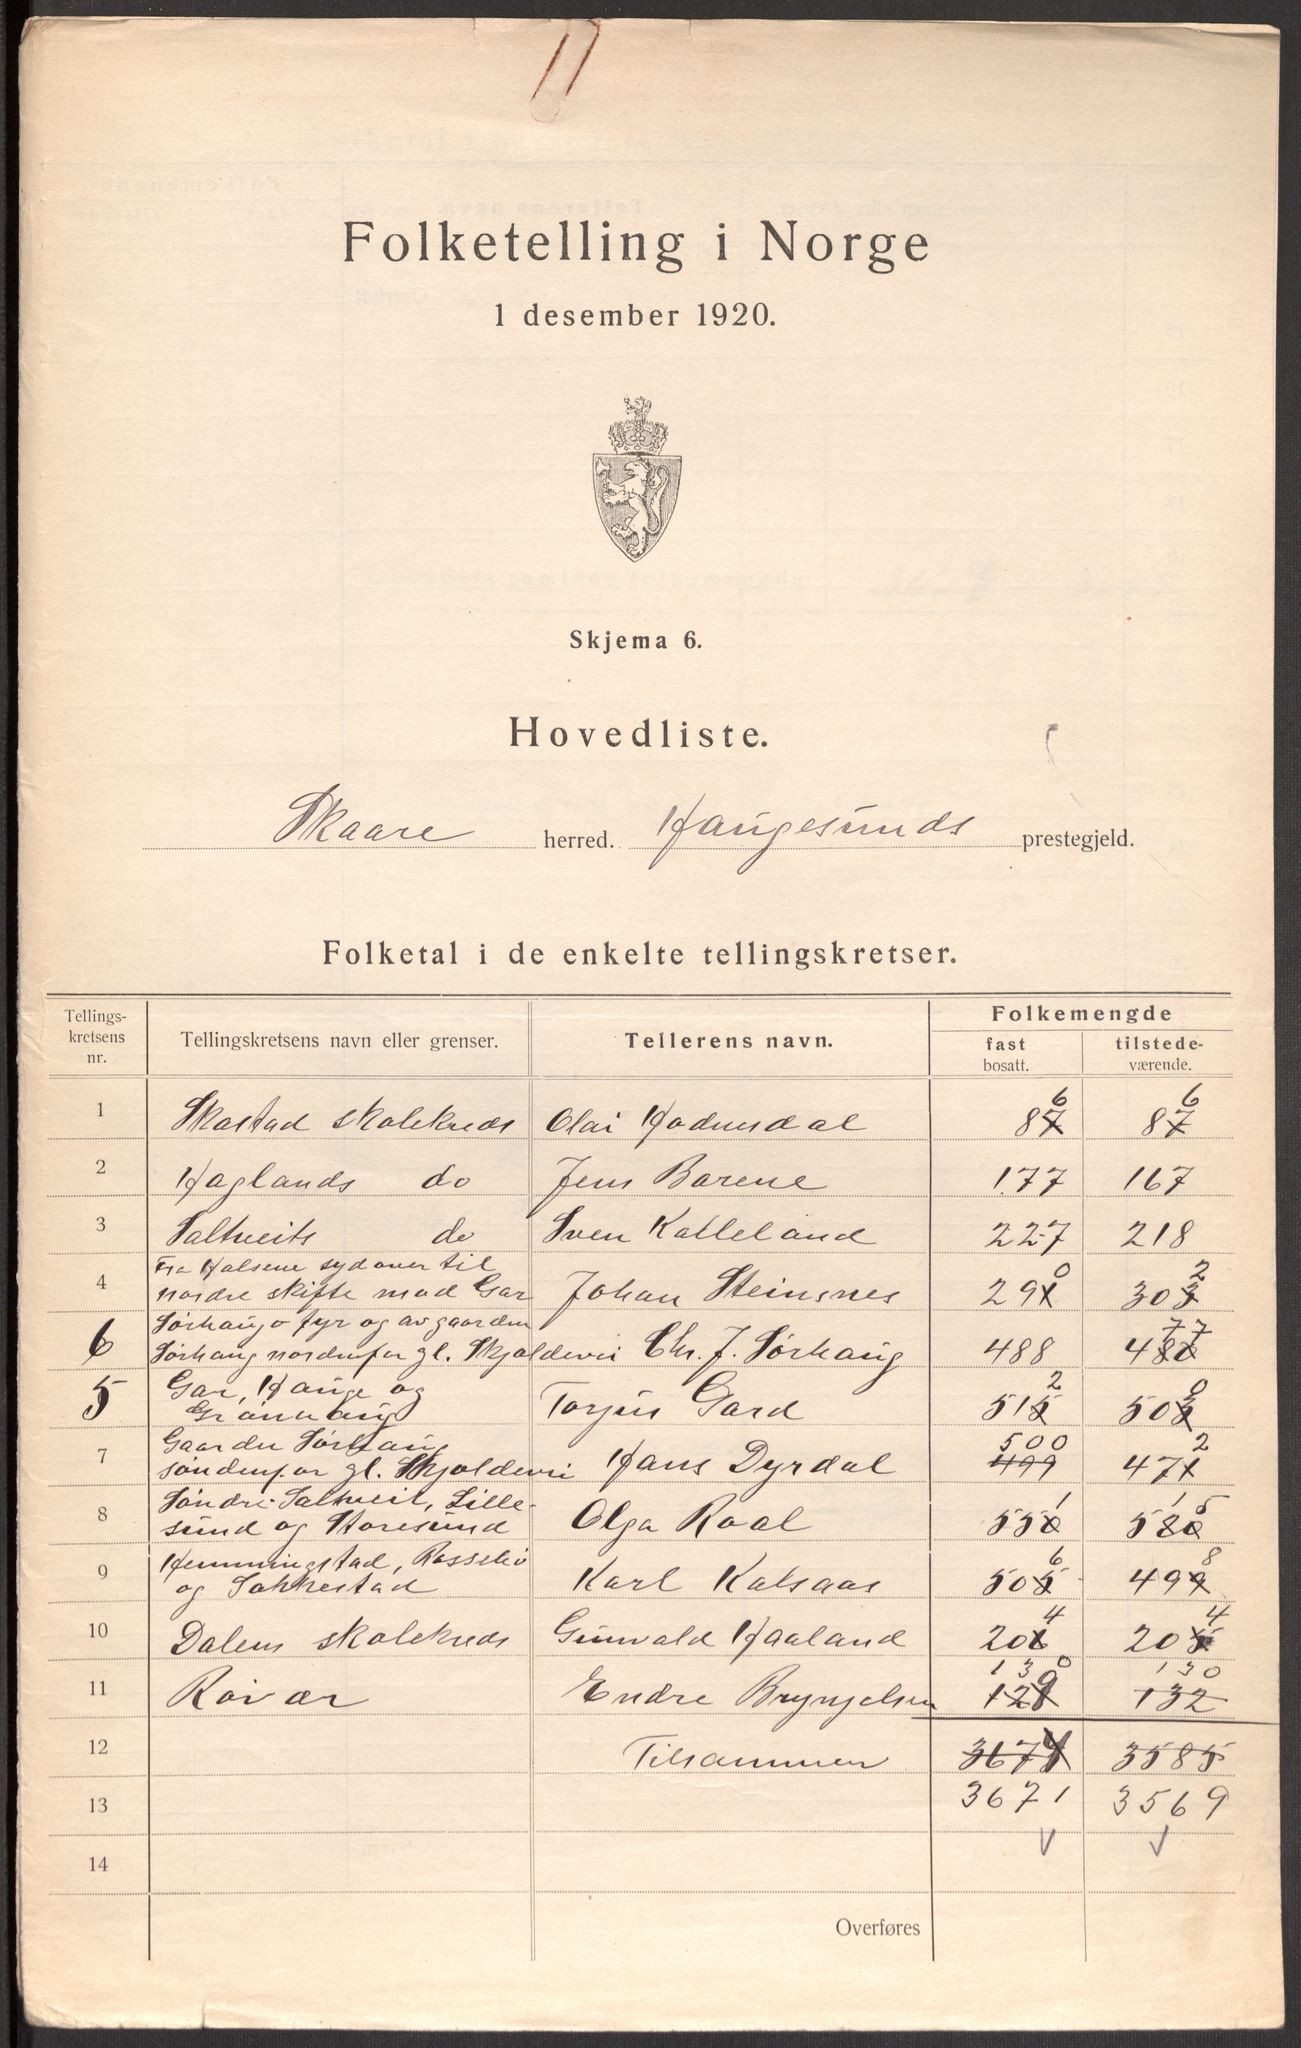 17
Folketelling i Norge
1 desember 1920.
Skjema 6.
Hovedliste.
Skaare herred. Haugesunds prestegjeld.
Folketal i de enkelte tellingskretser.
Tellings-kretsens nr. Tellingskretsens navn eller grenser. Tellerens navn. Folkemengde
fast bosatt. tilstede-værende.
1 Skastad skolekreds Olai 86 86
2 Haglands do Jens Barene 177 167
3 Saltveits do Sven Kalleland 227 218
Fra Halsene sydover til
4 nordre skifte mod Gar Johan Steinsnes 290 302
Sørhaug fyr og av gaarden
6 Sørhaug nordenfor gl. Skjoldevei Chr. J. Sørhaug 488 477
5 Gar, Hauge og Torjus Gard 512 500
Grønhaug
Gaarden Sørhaug
7 søndenfor gl. Skjoldevei Hans Dyrdal 499 500 472
Søndre Saltveit, Lille-
8 sund og Storesund Olga Roal 551 515
Hemmingstad, Rossebø
9 og Sakkestad Karl Kalsaas 506 498
10 Dalens skolekreds Gunvald Haaland 204 204
11 Røivær Endre Bryngelsen 130 132 130
12 Tilsammen 3674 3585
13 3671 3569
14
Overføres